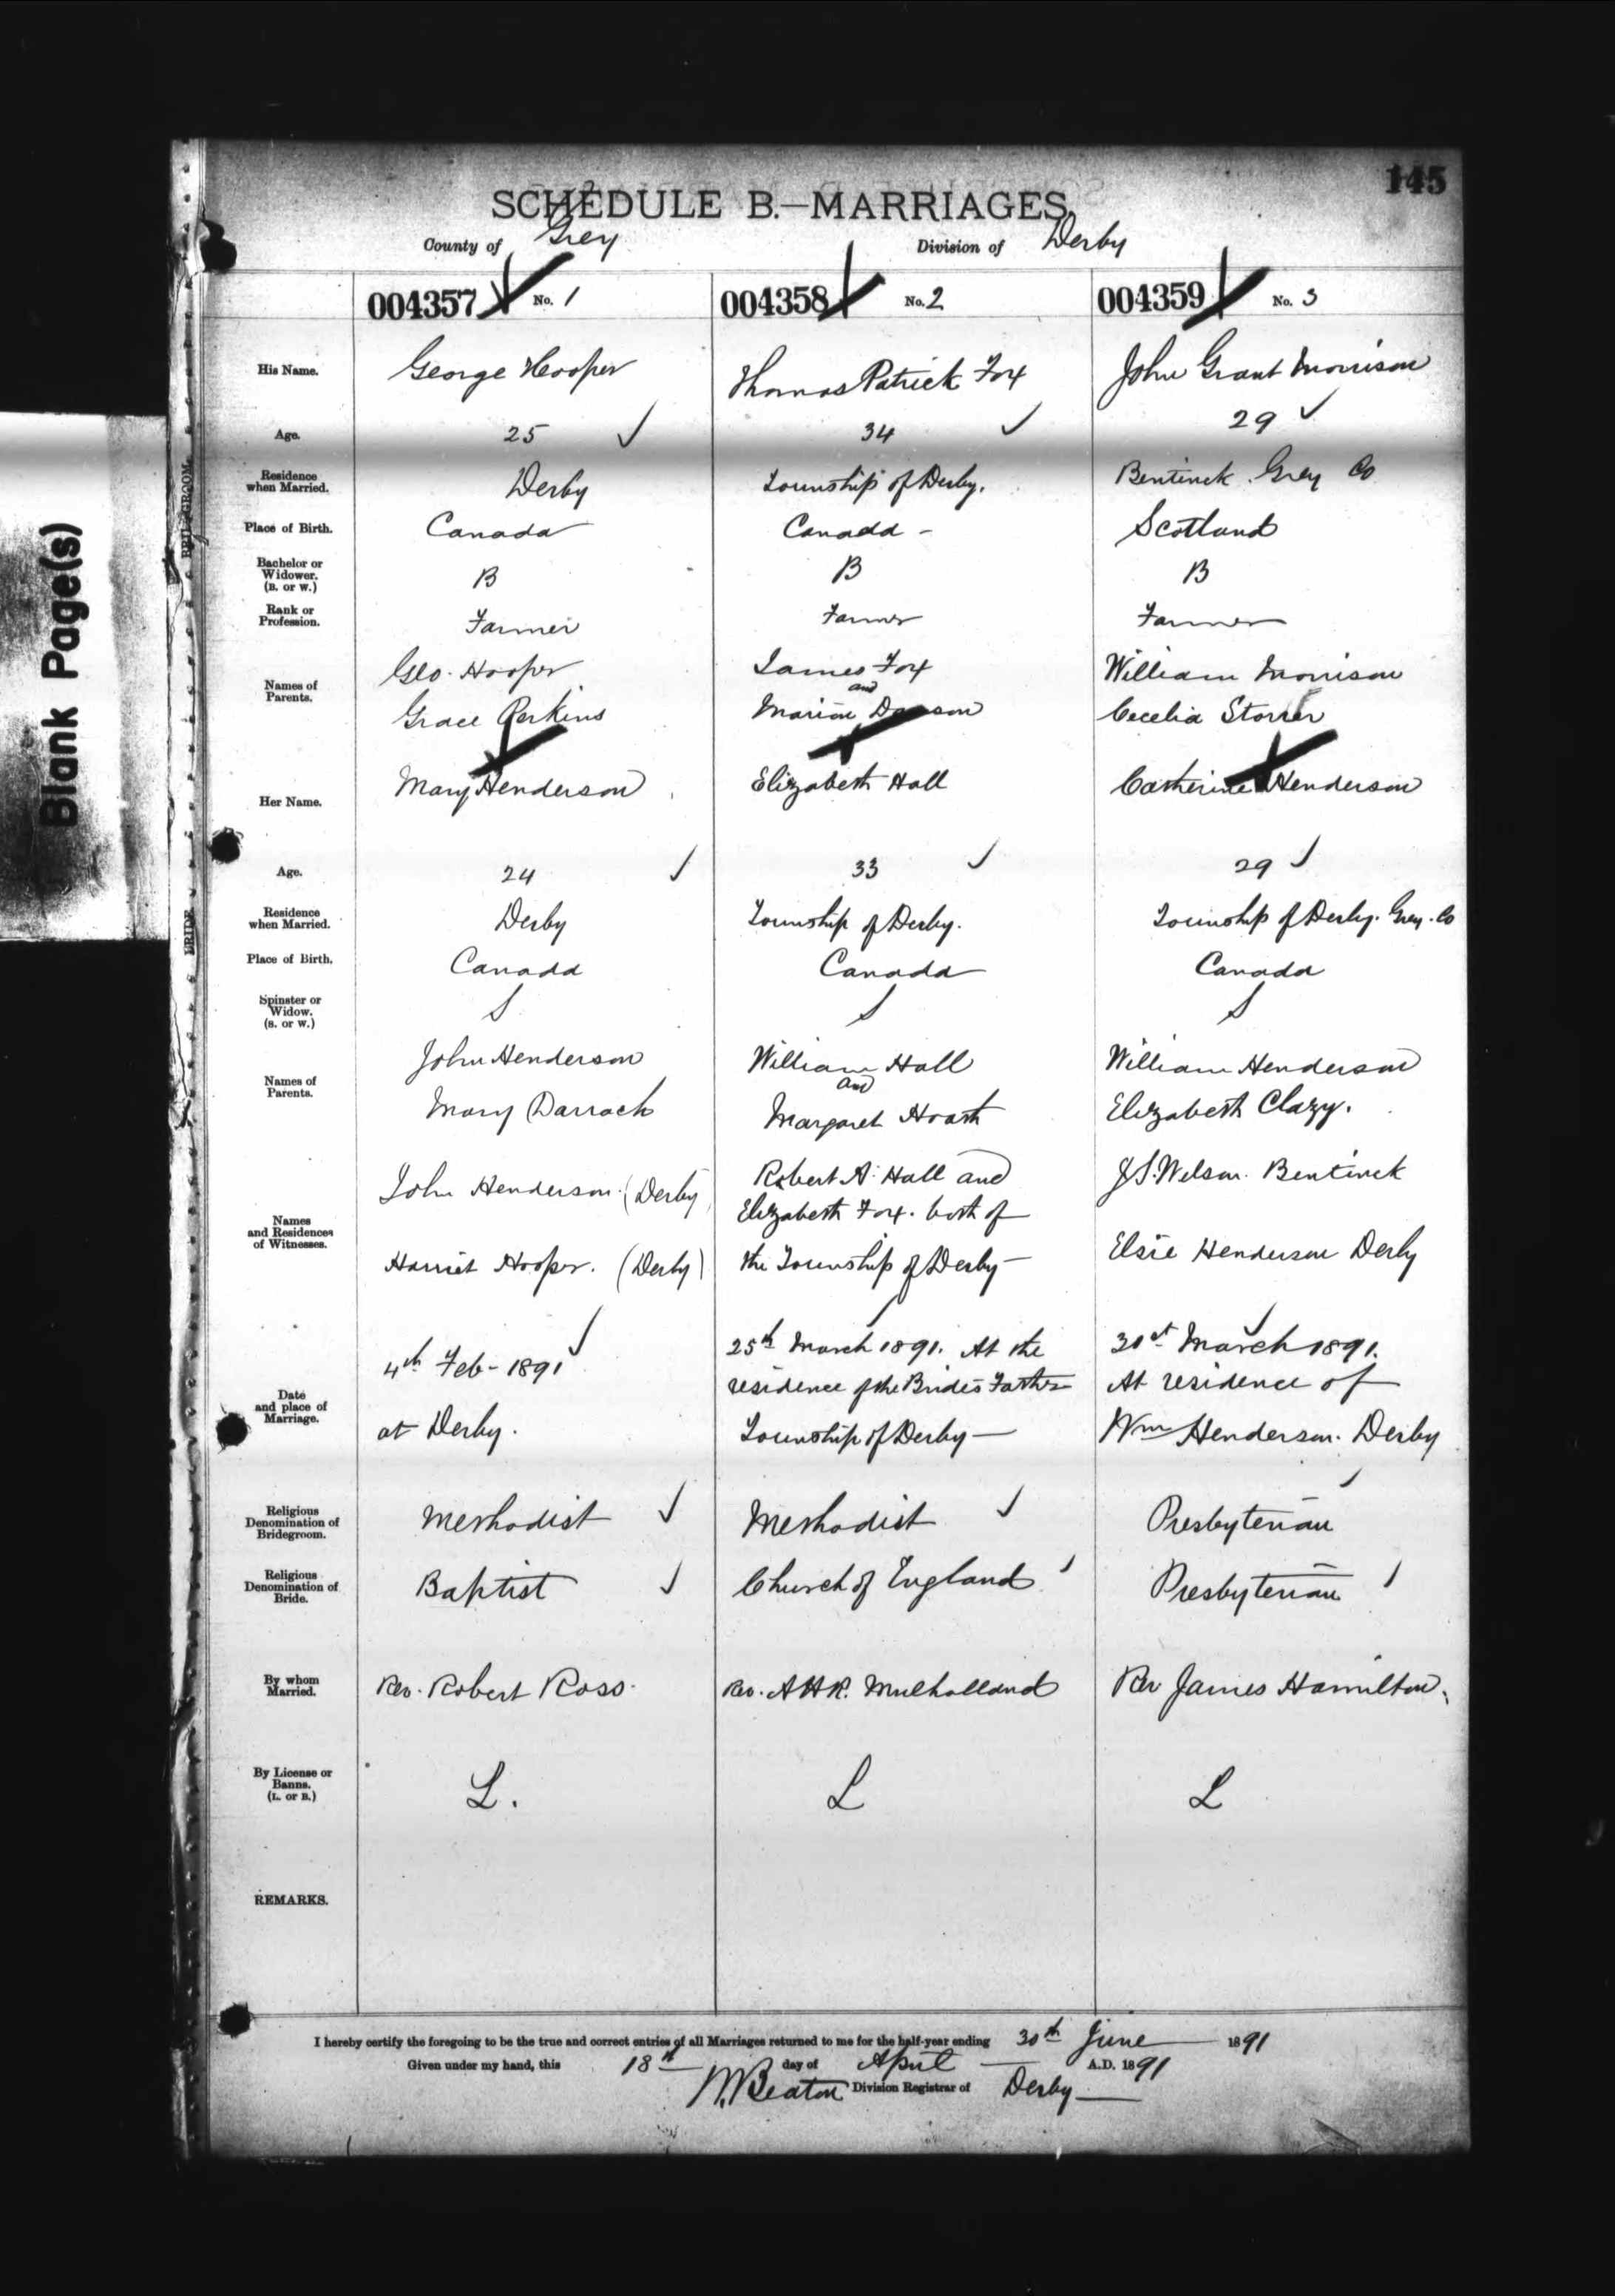 Blank Page(s)
145
SCHEDULE B.—MARRIAGES.
County of Grey Division of Derby
004357 No. 1 004358 No. 2 004359 No. 3
BRIDEGROOM.
His Name. George Hooper Thomas Patrick Fox John Grant Morrison
Age. 25 34 29
Residence when Married. Derby Township of Derby. Bentinck. Grey Co
Place of Birth. Canada Canada - Scotland
Bachelor or Widower. (B. or W.) B B B
Rank or Profession. Farmer Farmer Farmer
Names of Parents. Geo. Hooper James Fox and William Morrison
Grace Perkins Marion Cecelia Storrer
BRIDE
Her Name. Mary Henderson Elizabeth Hall Catherine Henderson
Age. 24 33 29
Residence when Married. Derby Township of Derby. Township of Derby. Grey. Co
Place of Birth. Canada Canada Canada
Spinster or Widow. (S. or W.) S S S
Names of Parents. John Henderson William Hall and William Henderson
Mary Darrach Margaret Elizabeth Clazy.
Names and Residences of Witnesses. John Henderson. (Derby) Robert A. Hall and J.S. Wilson. Bentinck
Elizabeth Fox. both of
Harriet Hooper. (Derby) the Township of Derby — Elsie Henderson Derby
Date and place of Marriage. 4th Feb - 1891 25th March 1891. At the 31st March 1891.
residence of the Brides Father At residence of
at Derby. Township of Derby — Wm Henderson. Derby
Religious Denomination of Bridegroom. Methodist Methodist Presbyterian
Religious Denomination of Bride. Baptist Church of England Presbyterian
By whom Married. Rev. Robert Ross. Rev. A H R. Mulholland Rev James Hamilton.
By License or Banns. (L. or B.) L. L L
REMARKS.
I hereby certify the foregoing to be the true and correct entries of all Marriages returned to me for the half-year ending 30th June 1891
Given under my hand, this 18th day of April A.D. 1891
Beaton Division Registrar of Derby